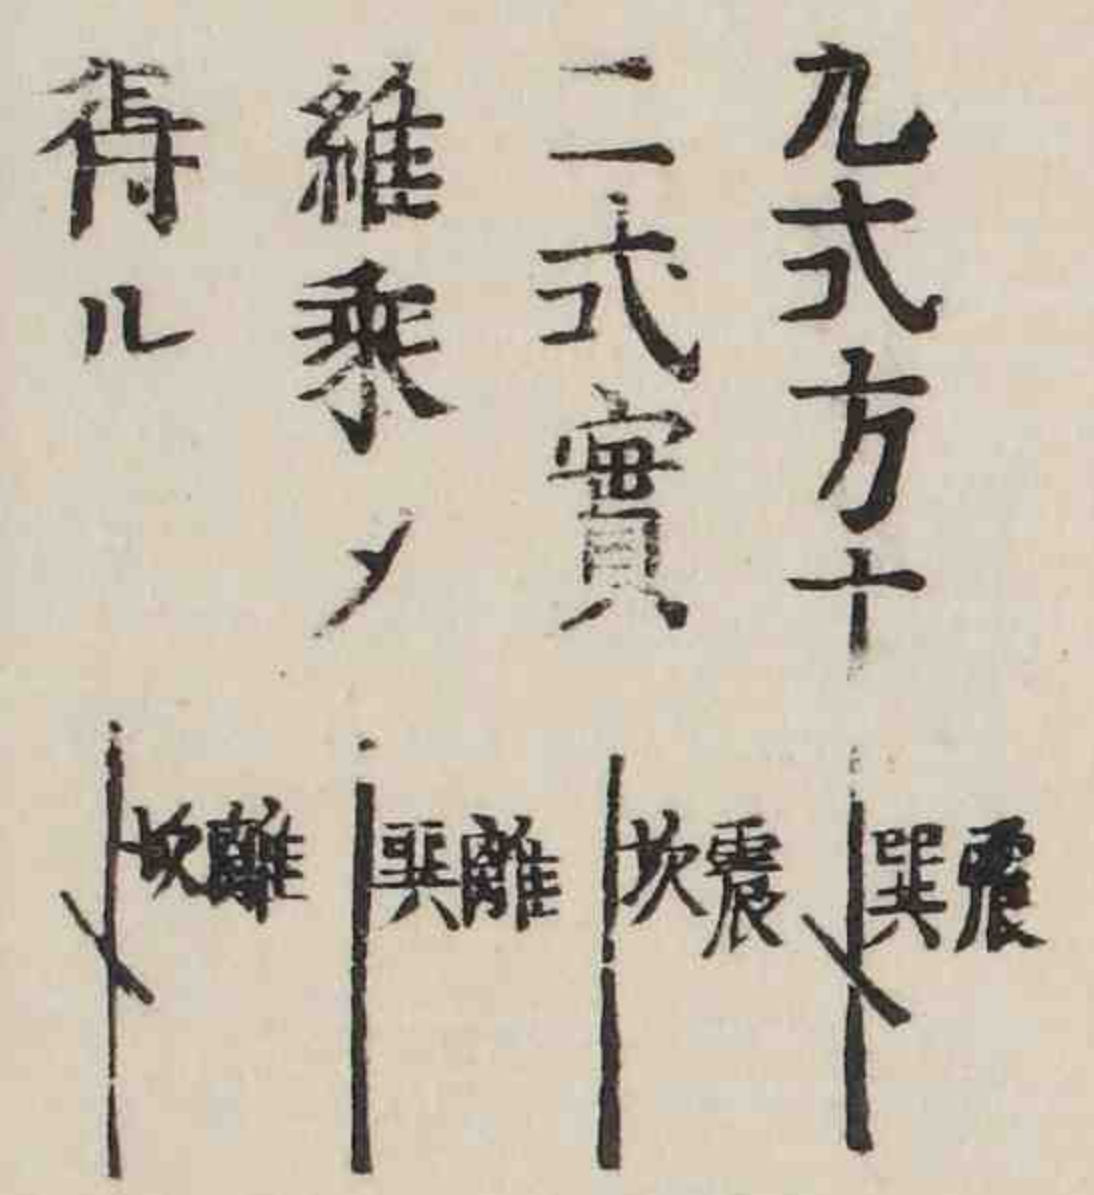 九式方十
二式實
維乘〆
得ル
震巽
震坎
離巽
離坎